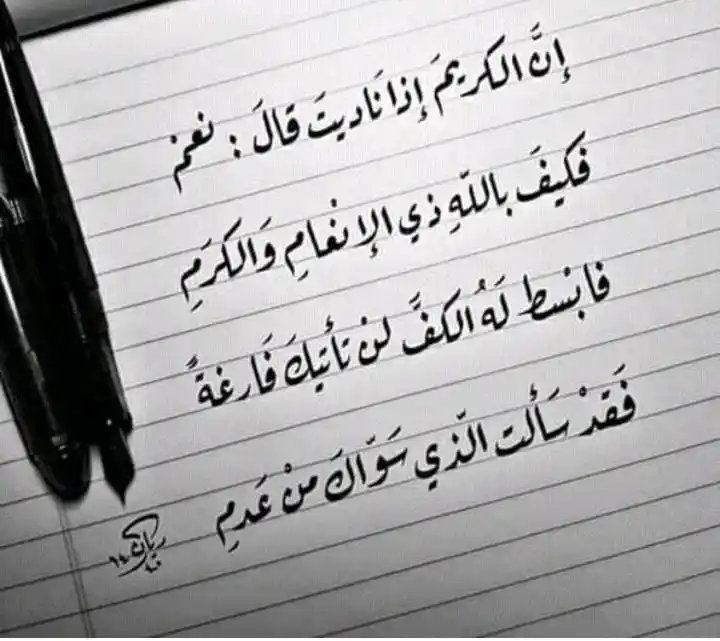 إنَّ الكريمَ إذا نَاديتَ قالَ : نعمْ
فكيفَ باللّهِ ذي الإنعامِ وَالكرَمِ
فابْسط لَهُ الكفَّ لنْ تأتيكَ فَارغةً
فَقدْ سَألت الّذي سَوّاكَ منْ عَدمِ